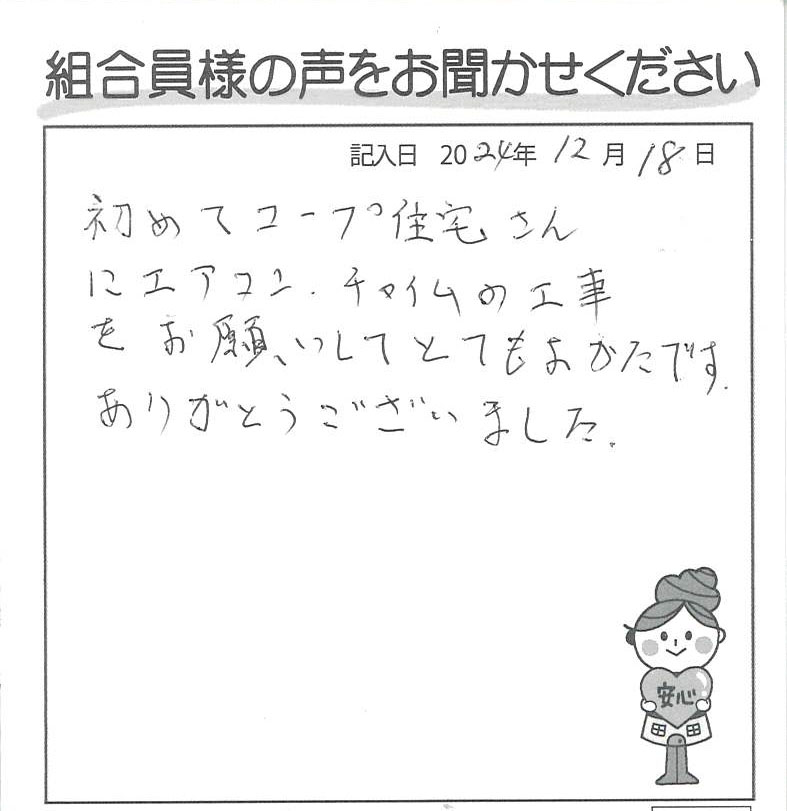 組合員様の声をお聞かせください
記入日 2024年 12月 18日
初めてコープ住宅さん
にエアコン.チャイムの工事
をお願いしてとてもよかたです.
ありがとうございました.
安心